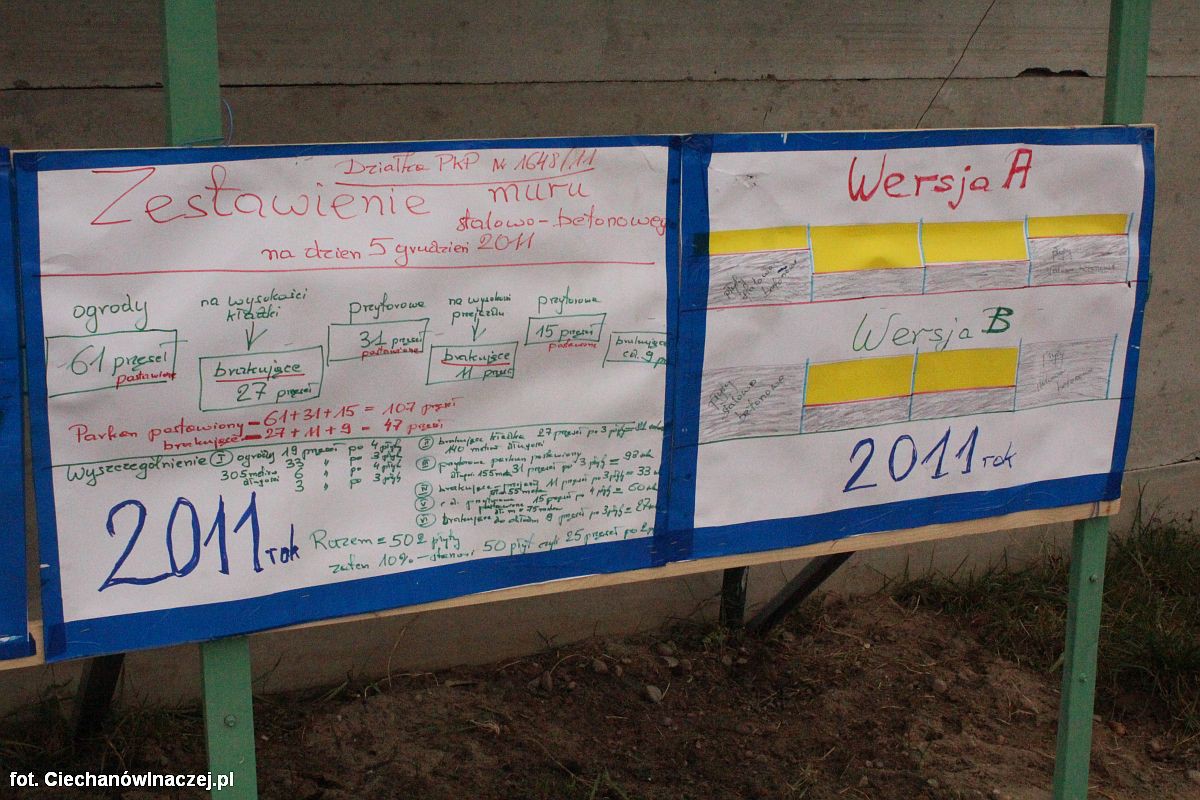 Działka PKP № 1648/11
Zestawienie muru
stalowo-betonowego
na dzień 5 grudzień 2011
ogrody
61 przęseł
postawione
na wysokości
kładki
brakujące
27 przęseł
przytorowe
31 przęseł
postawione
na wysokości
przejazdu
brakujące
11 przęseł
przytorowe
15 przęseł
postawione
brakujące
ok. 9
Parkan postawiony - 61+31+15 = 107 przęseł
brakujące - 27+11+9 = 47 przęseł
Wyszczególnienie I ogrody 19 przęseł po 4 płyty
305 metro 33 " po 3 płyt
długości 6 " po 4 płyt
3 " po 3 płyt
II brakujące kładka 27 przęseł po 3 płyty =
140 metrów długości
III przytorowe parkan postawiony
długa 155 metr 31 przęseł po 3 płyt = 93
IV brakujące - przejazd 11 przęseł po 3 płyt = 33
dług. 55 metr
V 15 przęseł po 4 płyt = 60
postawione
dł. m = 75 metr
VI brakujące do 9 przęseł po 3 płyt = 27
Razem = 502 płyty
zatem 10% - stanowi 50 płyt czyli 25 przęseł po 2
2011 rok
Wersja A
płyty
stalowo
betonowe
płyty
stalowo betonowe
Wersja B
płyty
stalowo
betonowe
płyty
stalowo
betonowe
2011 rok
fot. CiechanówInaczej.pl